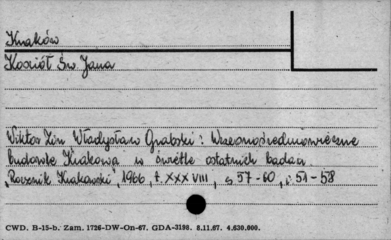 Kraków
Kościół Św. Jana
Wiktor Zin Władysław Grabski: Wczesnośredniowieczne
budowle Krakowa w świetle ostatnich badań.
"Rocznik Krakowski", 1966, t. XXXVIII, s 57-60, i 51-58
CWD. B-15-b. Zam. 1726-DW-On-67. GDA-3198. 8.11.67. 4.630.000.